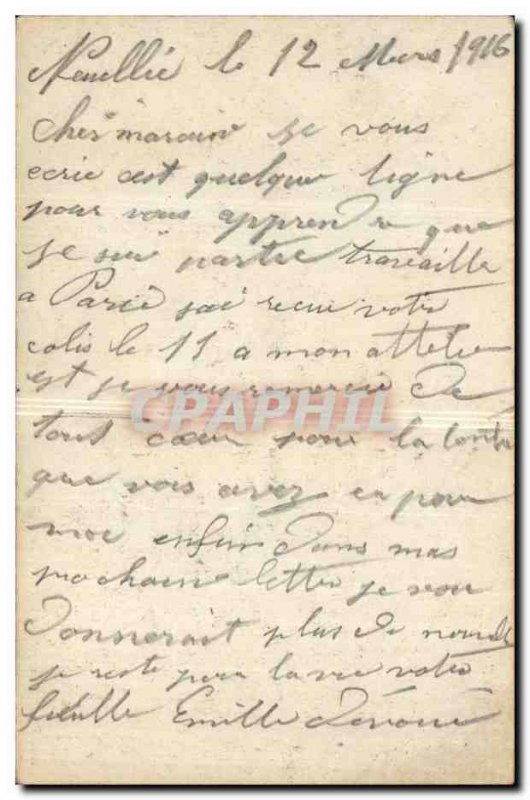 Neuillié le 12 Mars 1916
Cher marain je vous
ecrie cest quelque ligne
pour vous apprendre que
je sui partie travaille
a Parie jai recu votre
colis le 11 a mon attelie
est je vous remercie de
CPAPHIL
tout cœur pour la bonté
que vous avez eu pour
moi enfin dans mas
prochain letter je vou
donnerait plus de nouvelle
je reste pour la vie votre
fieulle Emille